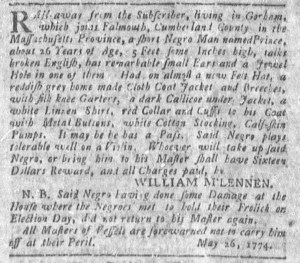 RAN-away from the Subscriber, living in Gorham,
which joins Falmouth, Cumberland County in the
Massachusetts Province, a short Negro Man named Prince,
about 26 Years of Age, 5 Feet some Inches high, talks
broken English, has remarkable small Ears and a Jewel
Hole in one of them. Had on almost a new Felt Hat, a
reddish grey home made Cloth Coat Jacket and Breeches,
with silk knee Garters, a dark Callicoe under Jacket, a
white Linnen Shirt, red Collar and Cuffs to his Coat
with Metal Buttons, white Cotton Stocking, Calf-skin
Pumps. It may be he has a Pass. Said Negro plays
tolerable well on a Violin. Whoever will take up said
Negro, or bring him to his Master shall have Sixteen
Dollars Reward, and all Charges paid, by
WILLIAM M'LENNEN.
N. B. Said Negro having done some Damage at the
House where the Negroes met to hold their Frolick on
Election Day, did not return to his Master again.
All Masters of Vessels are forewarned not to carry him
off at their Peril. May 26, 1774.